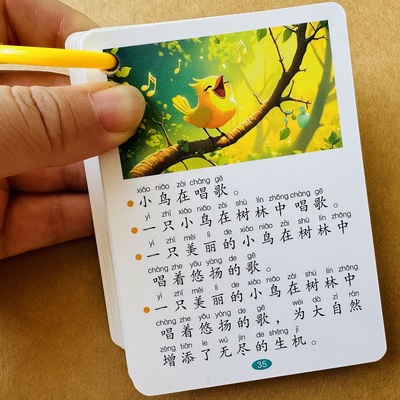 xiǎo niǎo zài chàng gē
小鸟在唱歌。
yì zhī xiǎo niǎo zài shù lín zhōng chàng gē
一只小鸟在树林中唱歌。
yì zhī měi lì de xiǎo niǎo zài shù lín zhōng
一只美丽的小鸟在树林中
chàng zhe yōu yáng de gē
唱着悠扬的歌。
yì zhī měi lì de xiǎo niǎo zài shù lín zhōng
一只美丽的小鸟在树林中
chàng zhe yōu yáng de gē wèi dà zì rán
唱着悠扬的歌，为大自然
zēng tiān le wú jìn de shēng jī
增添了无尽的生机。
35